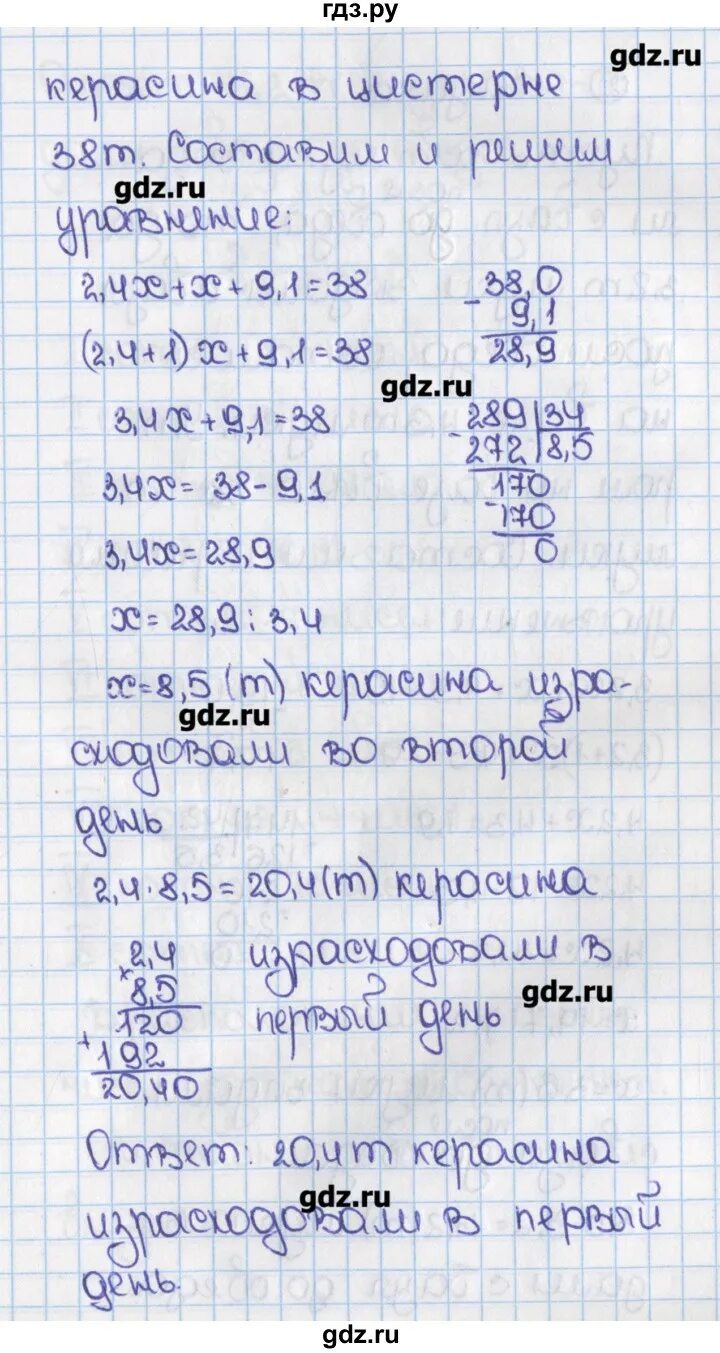 гдз.ру
gdz.ru
керасина в цистерне
38т. Составим и решим
gdz.ru
уравнение:
2,4x+x+9,1=38
(2,4+1)x+9,1=38
3,4x+9,1=38
3,4x=38-9,1
3,4x=28,9
x=28,9:3,4
38,0
- 9,1
28,9
gdz.ru
- 289 | 34
272 | 8,5
- 170
170
0
x=8,5 (т) керасина изра-
gdz.ru
сходовали во второй
день
2,4·8,5=20,4(т) керасина
израсходовали в
gdz.ru
первый день
2,4
× 8,5
120
+ 192
20,40
Ответ: 20,4т керасина
gdz.ru
израсходовали в первый
день.
gdz.ru